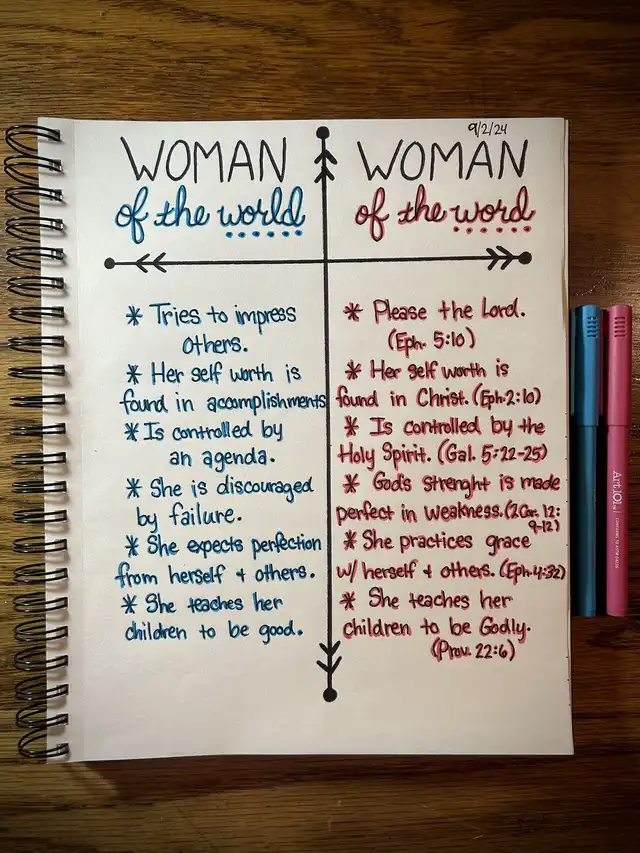 9/2/24
WOMAN
of the world
* Tries to impress
others.
* Her self worth is
found in accomplishments
* Is controlled by
an agenda.
* She is discouraged
by failure.
* She expects perfection
from herself + others.
* She teaches her
children to be good.
WOMAN
of the word
* Please the Lord.
(Eph. 5:10)
* Her self worth is
found in Christ. (Eph. 2:10)
* Is controlled by the
Holy Spirit. (Gal. 5:22-25)
* God's strenght is made
perfect in weakness. (2 Cor. 12:
9-12)
* She practices grace
w/ herself + others. (Eph. 4:32)
* She teaches her
children to be Godly.
(Prov. 22:6)